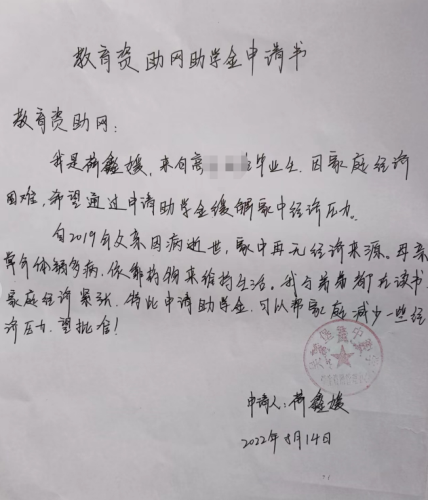 教育资助网助学金申请书
教育资助网：
我是荷鑫媛，来自离 毕业生，因家庭经济
困难，希望通过申请助学金缓解家中经济压力。
自2019年父亲因病逝世，家中再无经济来源。母亲
常年体弱多病，依靠 来维持生活。我与弟弟都在读书，
家庭经济紧张，特此申请助学金，可以帮家庭减少一些经
济压力，望批准！
申请人：荷鑫媛
2022年8月14日